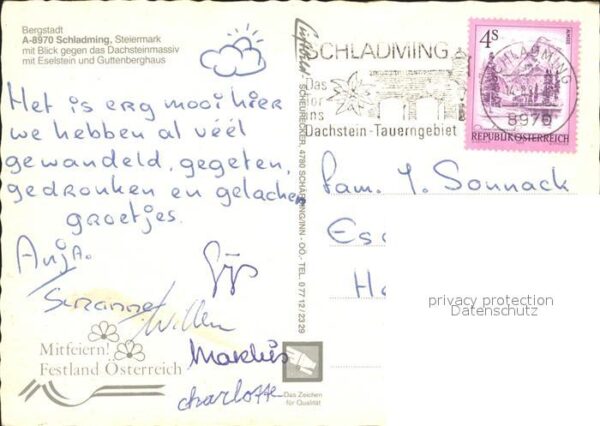 Bergstadt
A-8970 Schladming, Steiermark
mit Blick gegen das Dachsteinmassiv
mit Eselstein und Guttenberghaus
Het is erg mooi hier
we hebben al véél
gewandeld, gegeten,
gedronken en gelachen
groetjes.
Anja.
Gijs
Suzanne
Willem
Markus
charlotte
Mitfeiern!
Festland Österreich
SCHEURECKER, 4780 SCHÄRDING/INN - OÖ. - TEL. 0 77 12 / 23 29
Das Zeichen
für Qualität
SCHLADMING
Das
Tor
ins
Dachstein-Tauerngebiet
4S
SCHLADMING
8970
REPUBLIK ÖSTERREICH
Fam. J. Sonnack
Es
Ha
privacy protection
Datenschutz